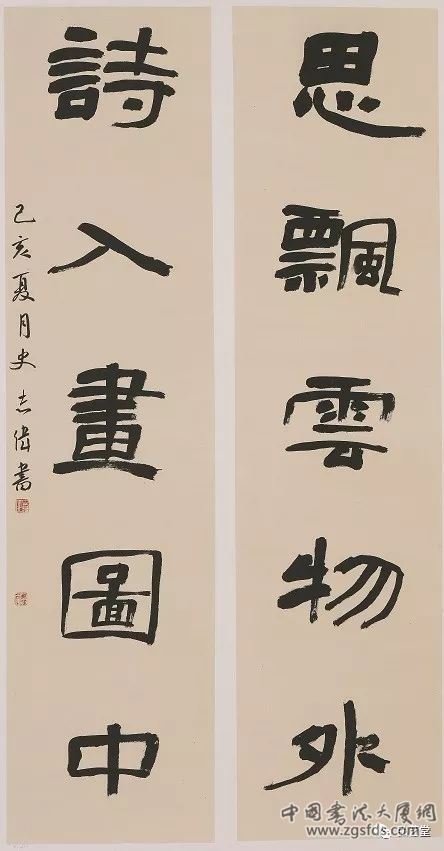 思飄雲物外
詩入畫圖中
己亥夏月史志偉書
中国书法大厦网
www.zgsfds.com